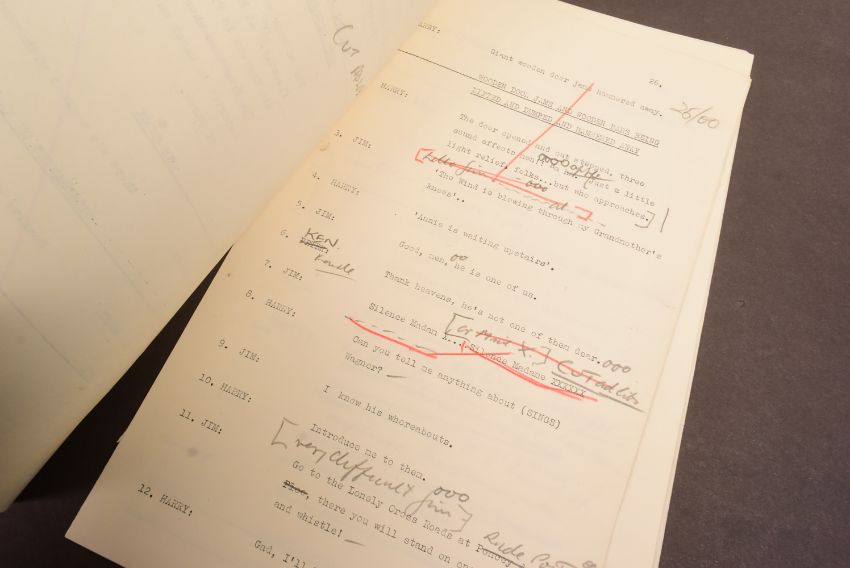 CUT
26.
HARRY:
Giant wooden door jams hammered away.
26/00
WOODEN DOOR JAMS AND WOODEN DAMS BEING
LIFTED AND DUMPED AND HAMMERED AWAY
HARRY:
The door opened and out stepped three
sound effects men. Just a little
light relief, folks...but who approaches.]
3. JIM:
'The Wind is blowing through my Grandmother's
knees'..
4. HARRY:
'Annie is waiting upstairs'.
5. JIM:
Good, men, he is one of us.
6. KEN.
Thank heavens, he's not one of them dear. ooo
7. JIM:
Silence Madam X... Silence Madame XXXXXX
CUT ad libs
8. HARRY:
Can you tell me anything about (SINGS)
Wagner?
9. JIM:
I know his whereabouts.
10. HARRY:
Introduce me to them. ooo
[very difficult Jim]
11. JIM:
Go to the Lonely Cross Roads at
there you will stand on
and whistle!
12. HARRY:
Gad, I'll